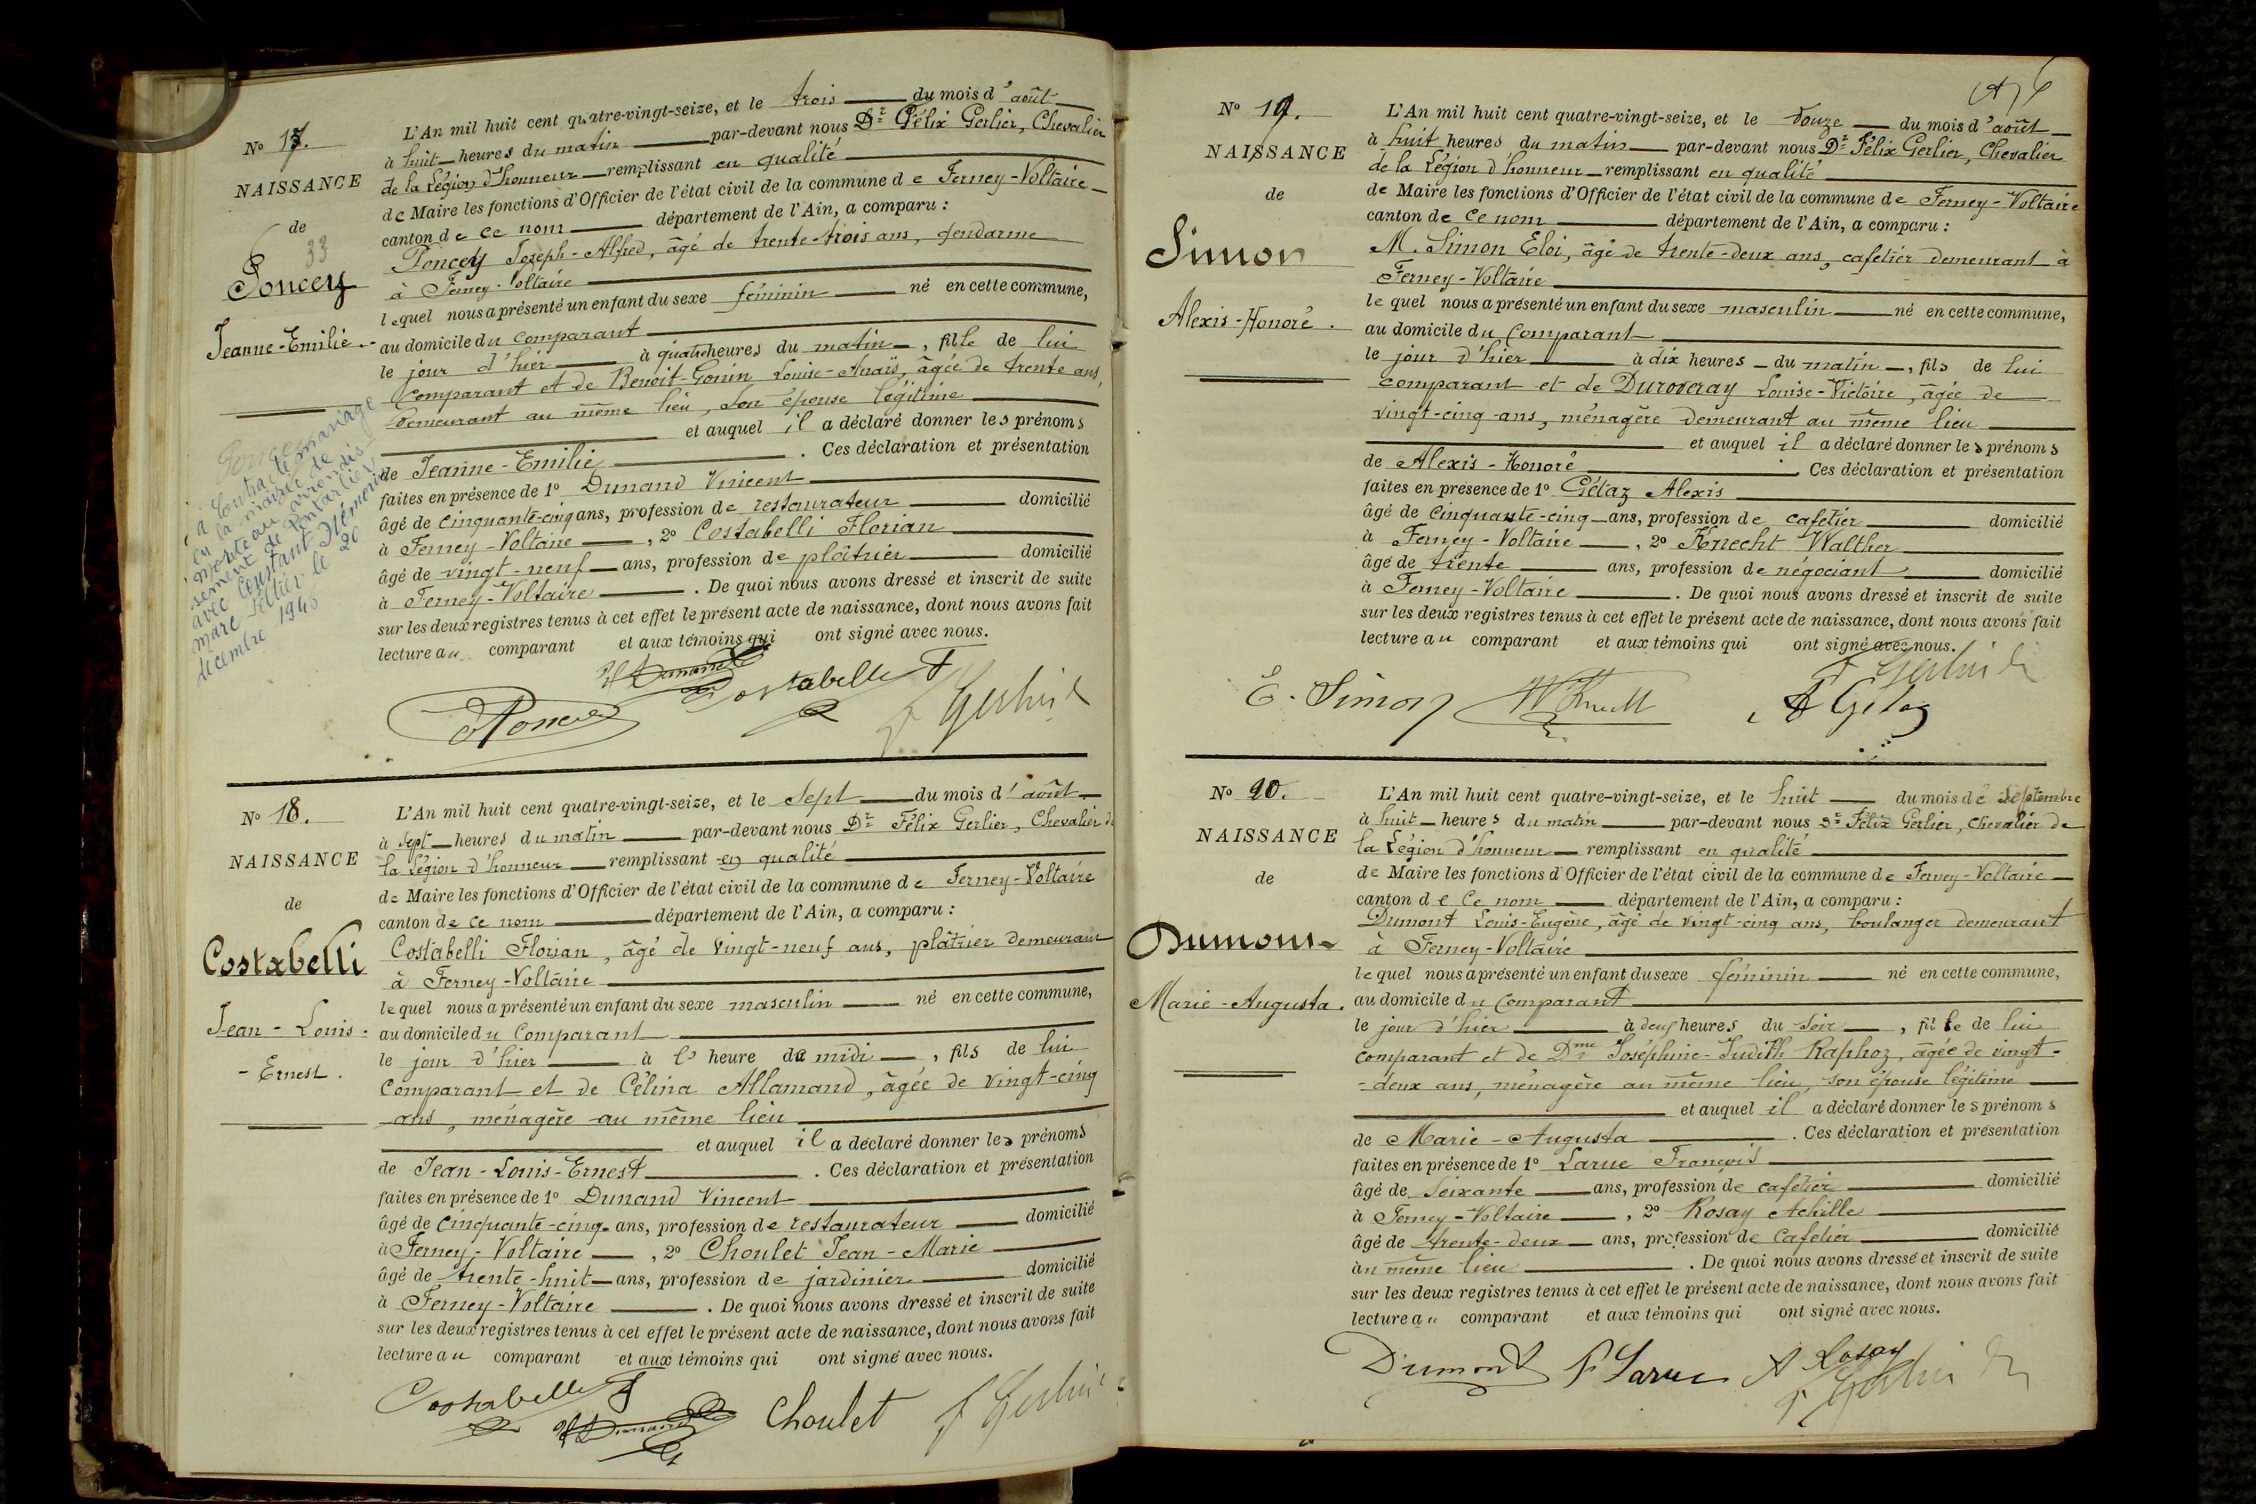 Nº 17.
NAISSANCE
de
33
Poncey
Jeanne-Emilie.
L'An mil huit cent quatre-vingt-seize, et le trois du mois d'août
à huit heures du matin par-devant nous Dr Félix Gerlier, Chevalier
de la Légion d'honneur remplissant en qualité
de Maire les fonctions d'Officier de l'état civil de la commune de Ferney-Voltaire
canton de ce nom département de l'Ain, a comparu :
Poncey Joseph-Alfred, âgé de trente-trois ans, gendarme
à Ferney-Voltaire
lequel nous a présenté un enfant du sexe féminin né en cette commune,
au domicile du comparant
le jour d'hier à quatre heures du matin, fille de lui
comparant et de Benoit-Gonin Louise-Anaïs, âgée de trente ans,
demeurant au même lieu, son épouse légitime
et auquel il a déclaré donner les prénoms
de Jeanne-Emilie. Ces déclaration et présentation
faites en présence de 1º Dunand Vincent
âgé de cinquante-cinq ans, profession de restaurateur domicilié
à Ferney-Voltaire, 2º Costabelli Florian
âgé de vingt-neuf ans, profession de plâtrier domicilié
à Ferney-Voltaire. De quoi nous avons dressé et inscrit de suite
sur les deux registres tenus à cet effet le présent acte de naissance, dont nous avons fait
lecture au comparant et aux témoins qui ont signé avec nous.
Poncey
a contracté mariage
en la mairie de
Morteau arrondis
sement de Pontarlier
avec Constant Mémorin
marc Pellier le 20
décembre 1946
V Dunand
Costabelli F
Poncey
F Gerlier
Nº 18.
NAISSANCE
de
Costabelli
Jean-Louis-
-Ernest.
L'An mil huit cent quatre-vingt-seize, et le sept du mois d'août
à sept heures du matin par-devant nous Dr Félix Gerlier, Chevalier de
la Légion d'honneur remplissant en qualité
de Maire les fonctions d'Officier de l'état civil de la commune de Ferney-Voltaire
canton de ce nom département de l'Ain, a comparu :
Costabelli Florian, âgé de vingt-neuf ans, plâtrier demeurant
à Ferney-Voltaire
lequel nous a présenté un enfant du sexe masculin né en cette commune,
au domicile du comparant
le jour d'hier à l' heure de midi, fils de lui
comparant et de Célina Allamand, âgée de vingt-cinq
ans, ménagère au même lieu
et auquel il a déclaré donner les prénoms
de Jean-Louis-Ernest. Ces déclaration et présentation
faites en présence de 1º Dunand Vincent
âgé de cinquante-cinq ans, profession de restaurateur domicilié
à Ferney-Voltaire, 2º Choulet Jean-Marie
âgé de trente-huit ans, profession de jardinier domicilié
à Ferney-Voltaire. De quoi nous avons dressé et inscrit de suite
sur les deux registres tenus à cet effet le présent acte de naissance, dont nous avons fait
lecture au comparant et aux témoins qui ont signé avec nous.
Costabelli F
V Dunand
Choulet
F Gerlier
Nº 19.
NAISSANCE
de
Simon
Alexis-Honoré.
L'An mil huit cent quatre-vingt-seize, et le douze du mois d'août
à huit heures du matin par-devant nous Dr Félix Gerlier, Chevalier
de la Légion d'honneur remplissant en qualité
de Maire les fonctions d'Officier de l'état civil de la commune de Ferney-Voltaire
canton de ce nom département de l'Ain, a comparu :
M. Simon Eloi, âgé de trente-deux ans, cafetier demeurant à
Ferney-Voltaire
lequel nous a présenté un enfant du sexe masculin né en cette commune,
au domicile du comparant
le jour d'hier à dix heures du matin, fils de lui
comparant et de Duroveray Louise-Victoire, âgée de
vingt-cinq ans, ménagère demeurant au même lieu
et auquel il a déclaré donner les prénoms
de Alexis-Honoré. Ces déclaration et présentation
faites en présence de 1º Gétaz Alexis
âgé de cinquante-cinq ans, profession de cafetier domicilié
à Ferney-Voltaire, 2º Knecht Walther
âgé de trente ans, profession de négociant domicilié
à Ferney-Voltaire. De quoi nous avons dressé et inscrit de suite
sur les deux registres tenus à cet effet le présent acte de naissance, dont nous avons fait
lecture au comparant et aux témoins qui ont signé avec nous.
F Gerlier
E. Simon
W Knecht
A Gétaz
Nº 20.
NAISSANCE
de
Dumont
Marie-Augusta.
L'An mil huit cent quatre-vingt-seize, et le huit du mois de septembre
à huit heures du matin par-devant nous Dr Félix Gerlier, Chevalier de
la Légion d'honneur remplissant en qualité
de Maire les fonctions d'Officier de l'état civil de la commune de Ferney-Voltaire
canton de ce nom département de l'Ain, a comparu :
Dumont Louis-Eugène, âgé de vingt-cinq ans, boulanger demeurant
à Ferney-Voltaire
lequel nous a présenté un enfant du sexe féminin né en cette commune,
au domicile du comparant
le jour d'hier à deux heures du soir, fille de lui
comparant et de Dme Joséphine-Judith Raphoz, âgée de vingt-
-deux ans, ménagère au même lieu, son épouse légitime
et auquel il a déclaré donner les prénoms
de Marie-Augusta. Ces déclaration et présentation
faites en présence de 1º Larue François
âgé de soixante ans, profession de cafetier domicilié
à Ferney-Voltaire, 2º Rosay Achille
âgé de trente-deux ans, profession de cafetier domicilié
au même lieu. De quoi nous avons dressé et inscrit de suite
sur les deux registres tenus à cet effet le présent acte de naissance, dont nous avons fait
lecture au comparant et aux témoins qui ont signé avec nous.
Dumont
F Larue
A Rosay
F Gerlier